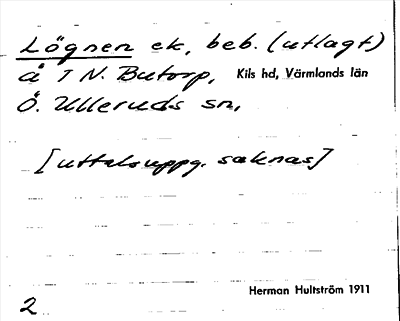 Lögnen ek, beb. (utlagt)
å 1 N. Butorp, Kils hd, Värmlands län
Ö. Ulleruds sn,
[uttalsuppg. saknas]
Herman Hultström 1911
2